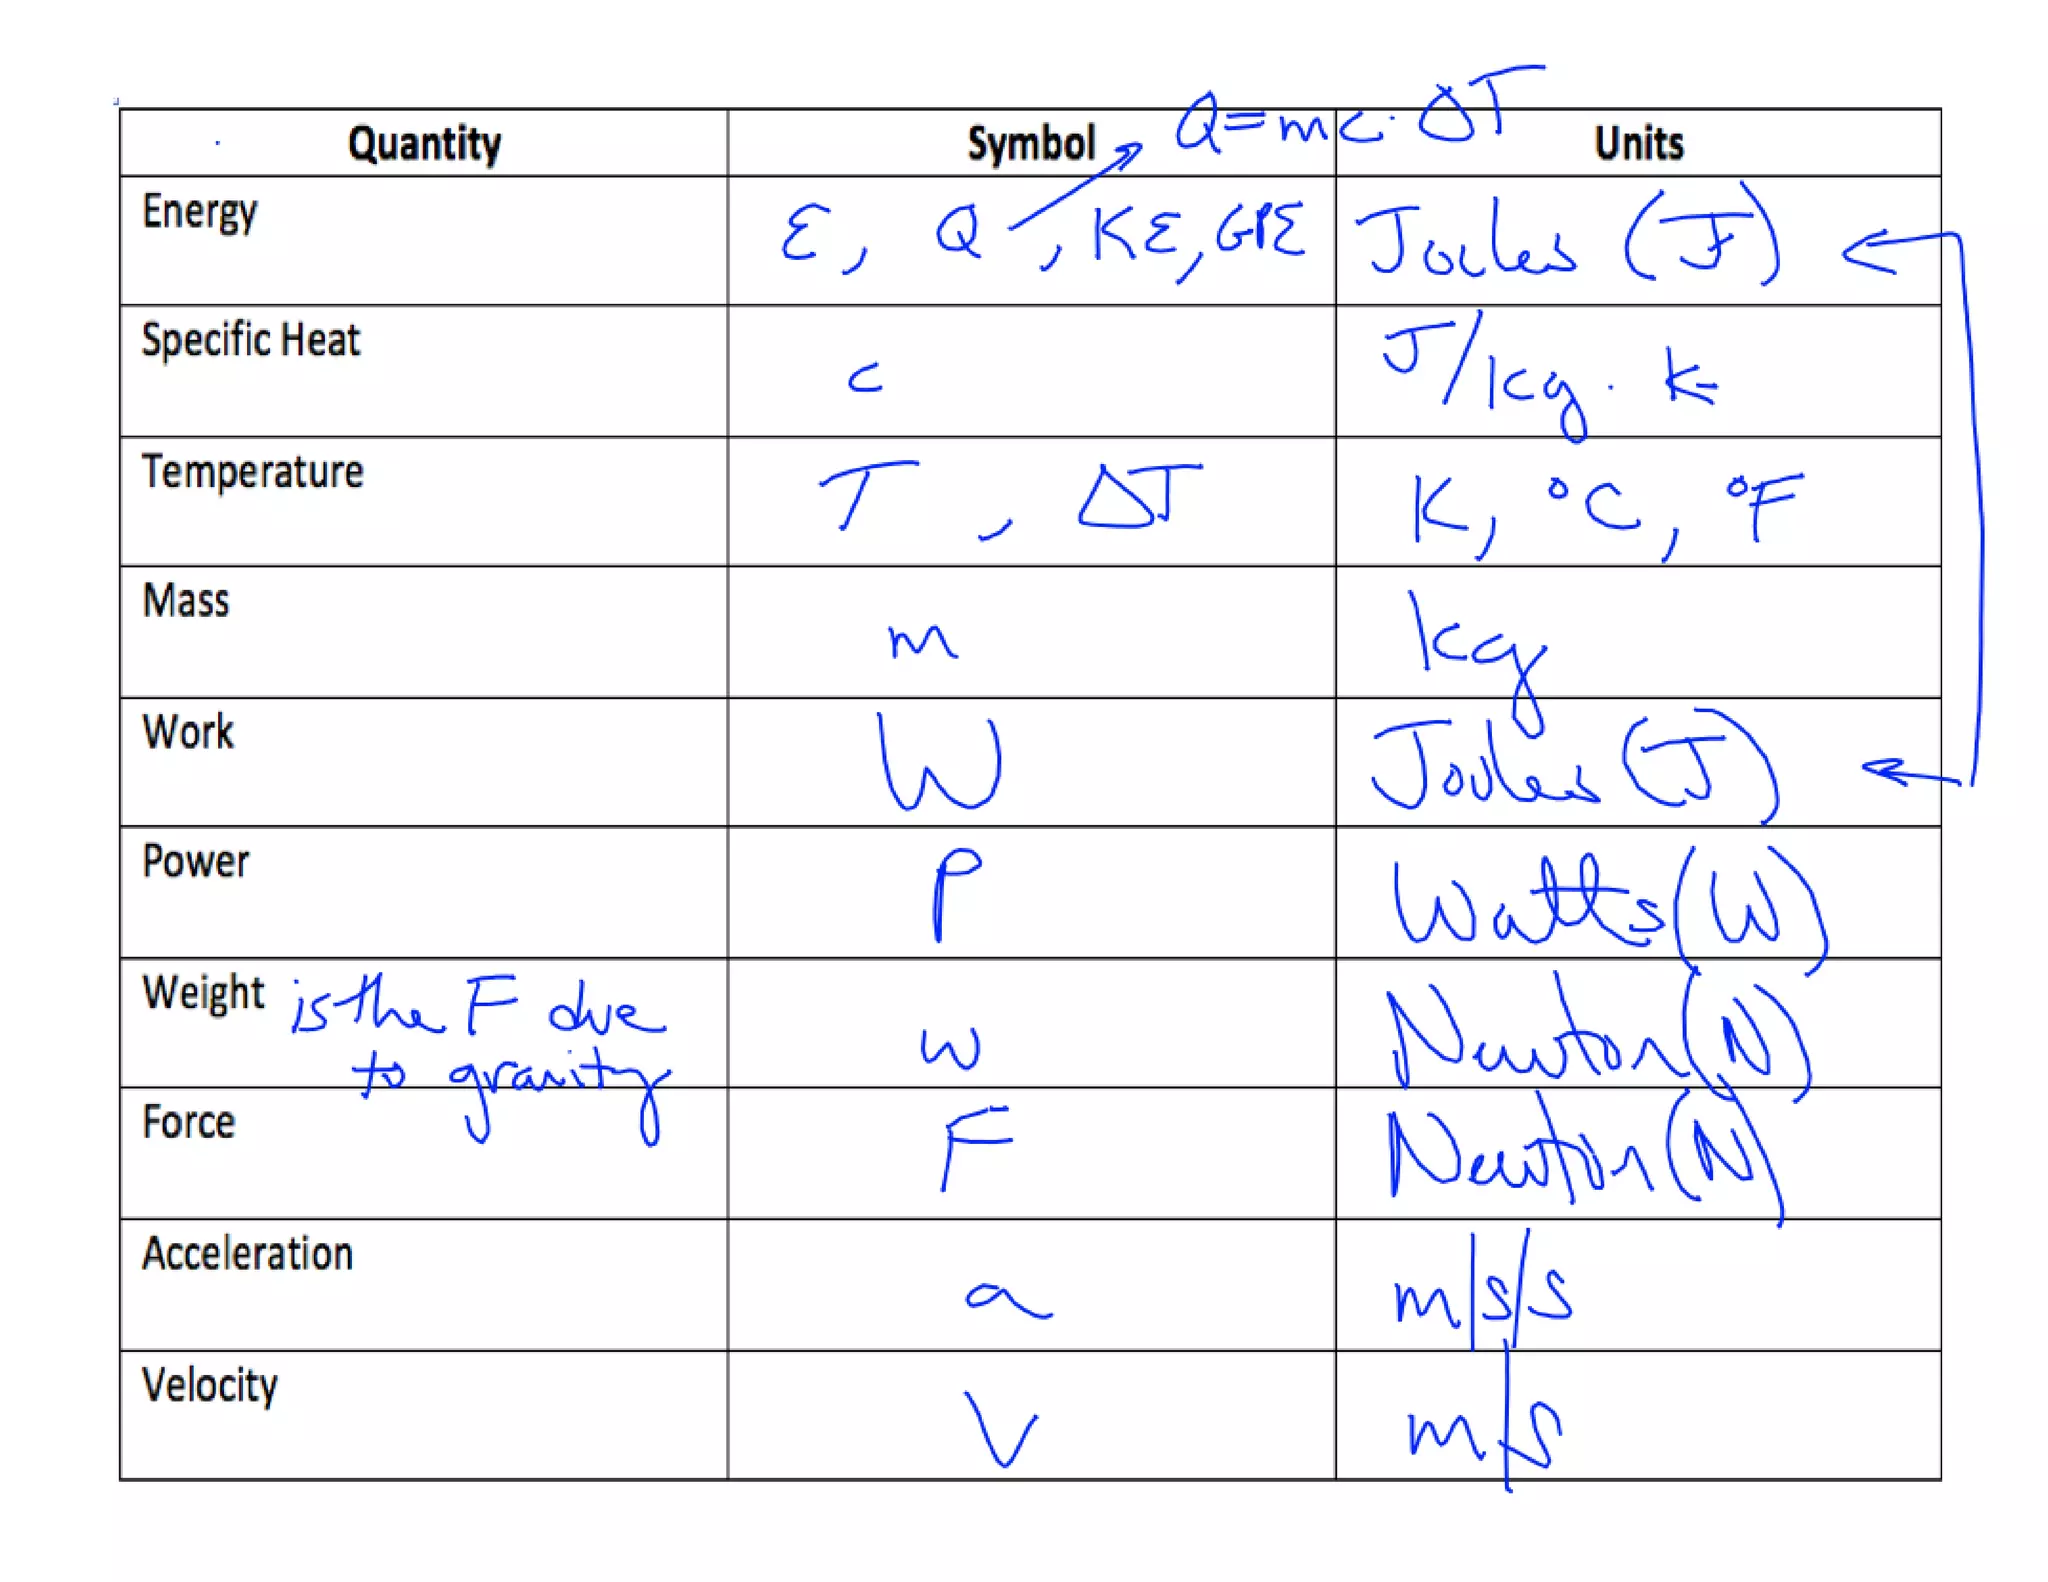 Q=mc·ΔT
Quantity Symbol Units
Energy E, Q, KE, GPE Joules (J)
Specific Heat c J/kg·k
Temperature T, ΔT K, °C, °F
Mass m kg
Work W Joules (J)
Power P Watts (W)
Weight is the F due w Newton (N)
to gravity
Force F Newton (N)
Acceleration a m/s/s
Velocity V m/s